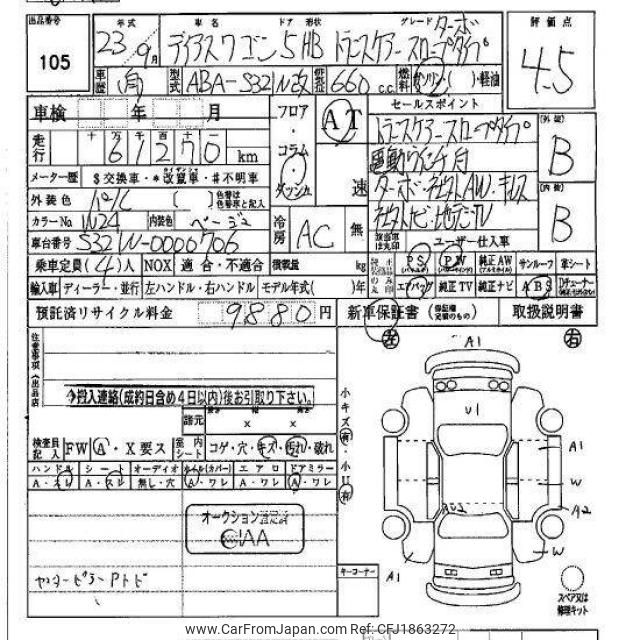 出品番号 年式 車名 ドア 形状 グレード 評価点
105 23 9月 ディアスワゴン 5HB ターボ トランスケアースロープタイプ 4.5
車歴 型式 ABA-S321N改 660 c.c. 燃料 ガソリン・( )・軽油
車検 年 月 フロア・コラム・ダッシュ AT セールスポイント
走行 十 万 千 百 十 61270 km 速
トランスケアースロープタイプ
電動ウインチ付
メーター歴 $ 交換車・* 改竄車・# 不明車
ターボ・社外AW・キーレス
外装色 パール ( ) 色替は色替車名と記入
社外ナビ・地デジTV
外装 B
内装 B
カラーNo. W24 内装色 ベージュ 冷房 AC 無
車台番号 S321N-0000706 ユーザー仕入車
乗車定員 (4)人 NOX 適合・不適合 積載量 kg PS PW 純正AW サンルーフ 革シート
輸入車 ディーラー・並行 左ハンドル・右ハンドル モデル年式( )年 エアバッグ 純正TV 純正ナビ ABS
預託済リサイクル料金 9880 円 新車保証書 (保証継定前のもの) 取扱説明書
注意事項(出品店)
搬入連絡(成約日含め4日以内)後お引取り下さい。
諸元 長さ x 幅 x 高さ
検査員記入 FW A・X要ス 室内シート コゲ・穴・キズ・汚れ・破れ
ハンドル シート オーディオ ホイル(カバー) エアロ ドアミラー
A・スレ A・スレ 無し・穴 A・ワレ A・ワレ A・ワレ
オークション
AA
センターピラーアトビ
小キズ有・小U有
左 右
A1
U1
A1
W
AU2
A2
A1
W
キーコーナー
スペア又は修理キット
www.CarFromJapan.com Ref: CFJ1863272